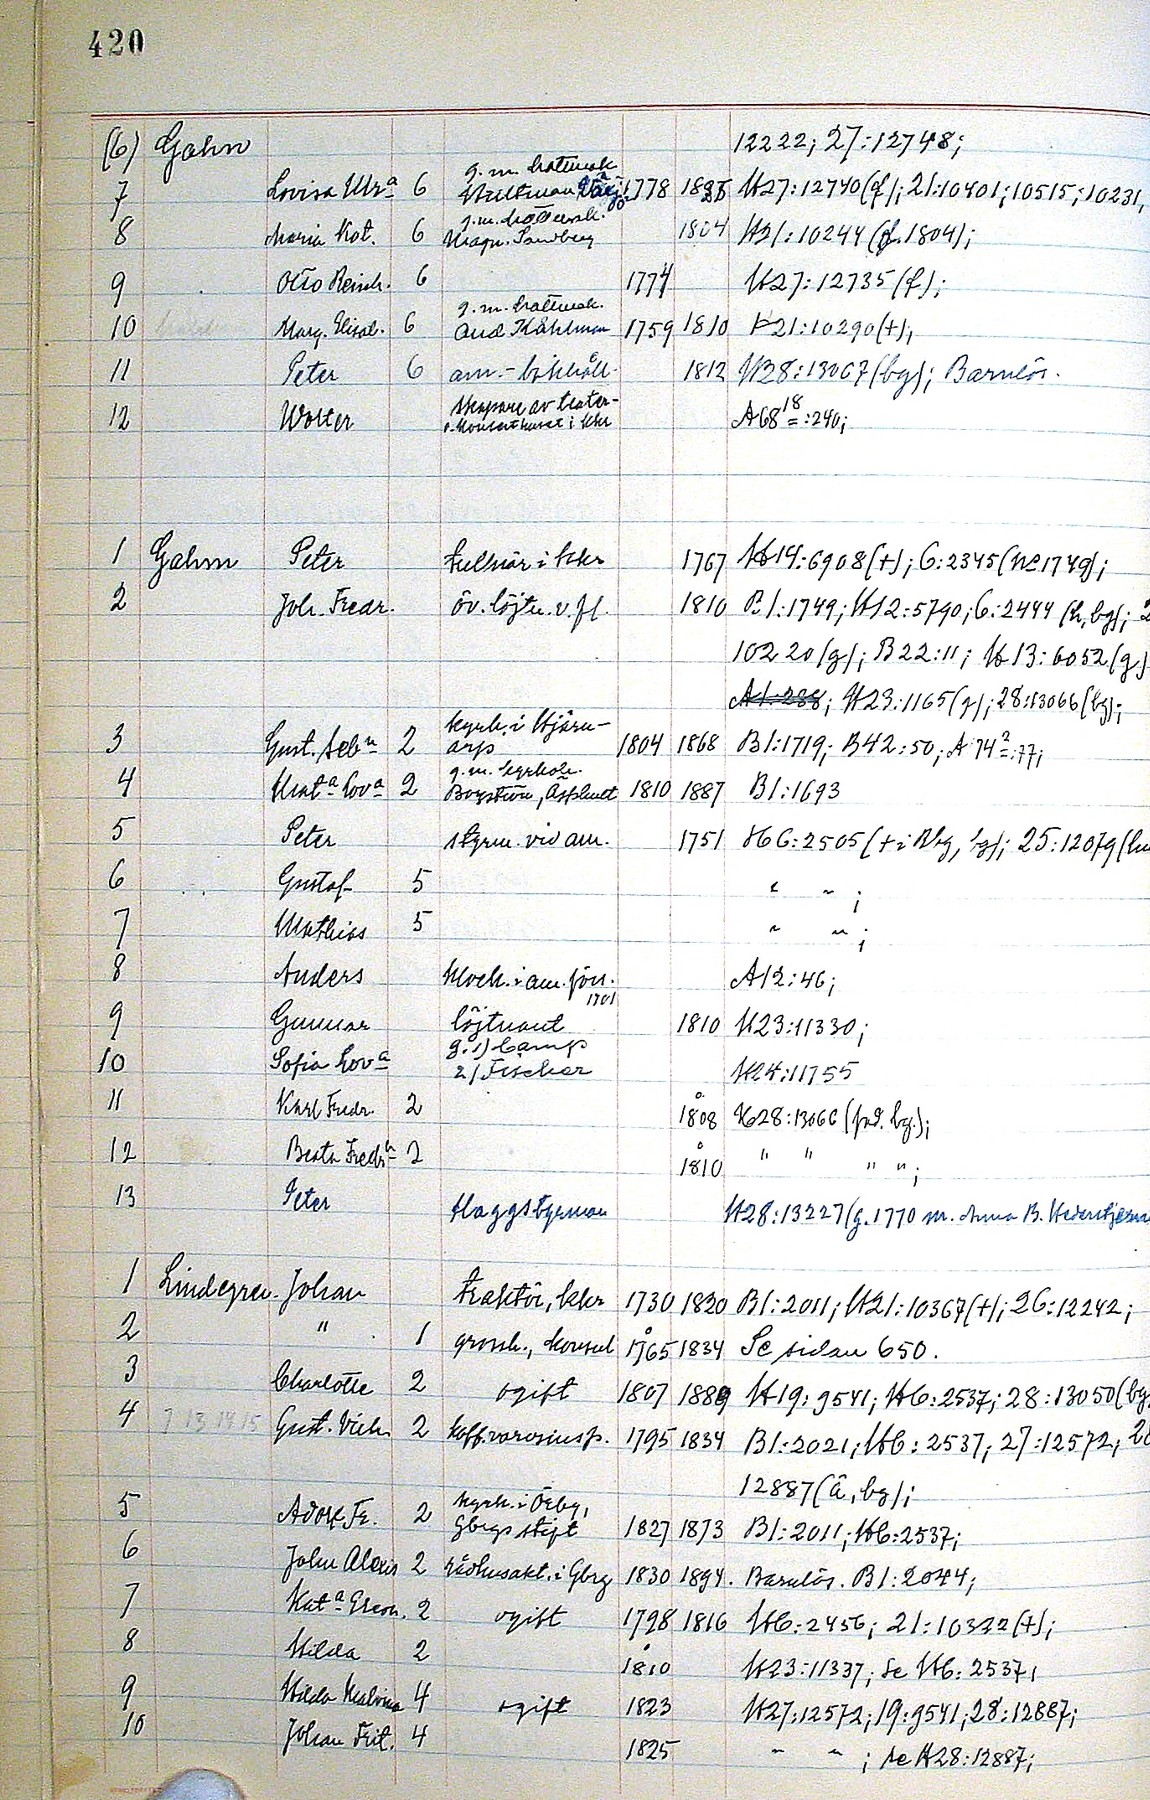 420
(6) Gahn 12222; 27:12748;
7 Lovisa Ulrª 6 g.m. hattmak. 1778 H27:12740(f); 21:10401; 10515; 10231,
8 Maria Kat. 6 g.m. hattmak. Magn. Sandberg 1804 H21:10244 (f. 1804);
9 Otto Reinh. 6 1774 H27:12735(f);
10 Marg. Elisab. 6 g.m. hattmak. And. Kählman 1759 1810 H21:10290(+);
11 Peter 6 am.-bokhåll. 1812 H28:13067(bg); Barnlös.
12 Wolter skapare av teater- o. konserthuset i Kkr A68 18:240;
1 Gahm Peter tullnär i Kkr 1767 H14:6908(+); 6:2345
2 Joh. Fredr. öv.löjtn. v. fl. 1810 B1:1749; H12:5790; 6:2444 (h, bg);
10220(g); B22:11; H13:6052(g)
A1:288; H23:1165(g); 28:13066(bg);
3 Gust. Sebⁿ 2 kyrkh. i Hjärn-
arp 1804 1868 B1:1719; B42:50; A74²:77;
4 Martª Lovª 2 g.m. kyrkoh. Bogström, Asphult 1810 1887 B1:1693
5 Peter styrm. vid am. 1751 H6:2505(+ i Kbg, bg); 25:12079
6 Gustaf 5 " " ;
7 Mathias 5 " " ;
8 Anders klock. i am. förs. 1701 A12:46;
9 Gunnar löjtnant 1810 H23:11330;
10 Sofia Lovª g. 1) Camp
2) Fischer H24:11755
11 Karl Fredr. 2 1808 H28:13066 (fad. bg.);
12 Beata Fredrª 2 1810 " " " " ;
13 Peter Flaggstyrman H28:13227(g. 1770 m. Anna B. Hederstjerna
1 Lindegren Johan traktör, Kkr 1730 1820 B1:2011; H21:10367(+); 26:12242;
2 " 1 grossh., konsul 1765 1834 Se sidan 650.
3 Charlotte 2 ogift 1807 1889 H19:9541; H6:2537; 28:13050(bg
4 7 13 14 15 Gust. Vilh. 2 1795 1834 B1:2021; H6:2537; 27:12572; 28
12887(å, bg);
5 Adolf Fr. 2 kyrkh. i Örby,
Gbgs stift 1827 1873 B1:2011; H6:2537;
6 John Alexis 2 rådhusakt. i Gbrg 1830 1894. Barnlös. B1:2044;
7 Katª Eleon. 2 ogift 1798 1816 H6:2456; 21:10322(+);
8 Hilda 2 1810 H23:11337; se H6:2537;
9 Hilda Malvina 4 ogift 1823 H27:12572; 19:9541; 28:12887;
10 Johan Frit. 4 1825 " " ; se H28:12887;